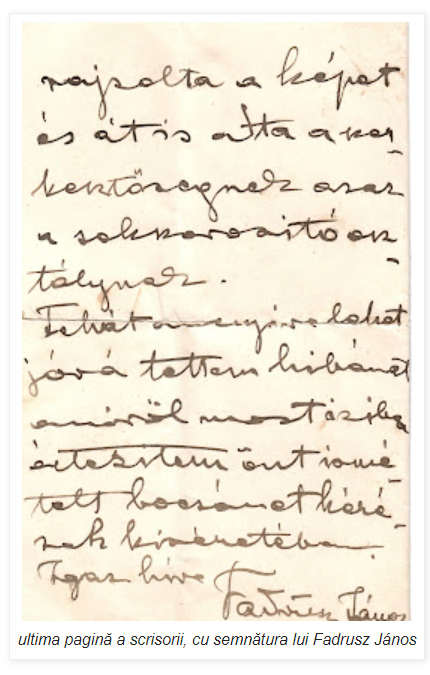 rajzolta a képet
és át is adta a szer-
kesztőségnek azaz
a sokszorosító osz-
tálynak.
Tehát amennyire lehet
jóvá tettem hibámat
amiről most
értesítem önt ismé-
telt bocsánat kéré-
sek kíséretében.
Igaz híve
Fadrusz János
ultima pagină a scrisorii, cu semnătura lui Fadrusz János